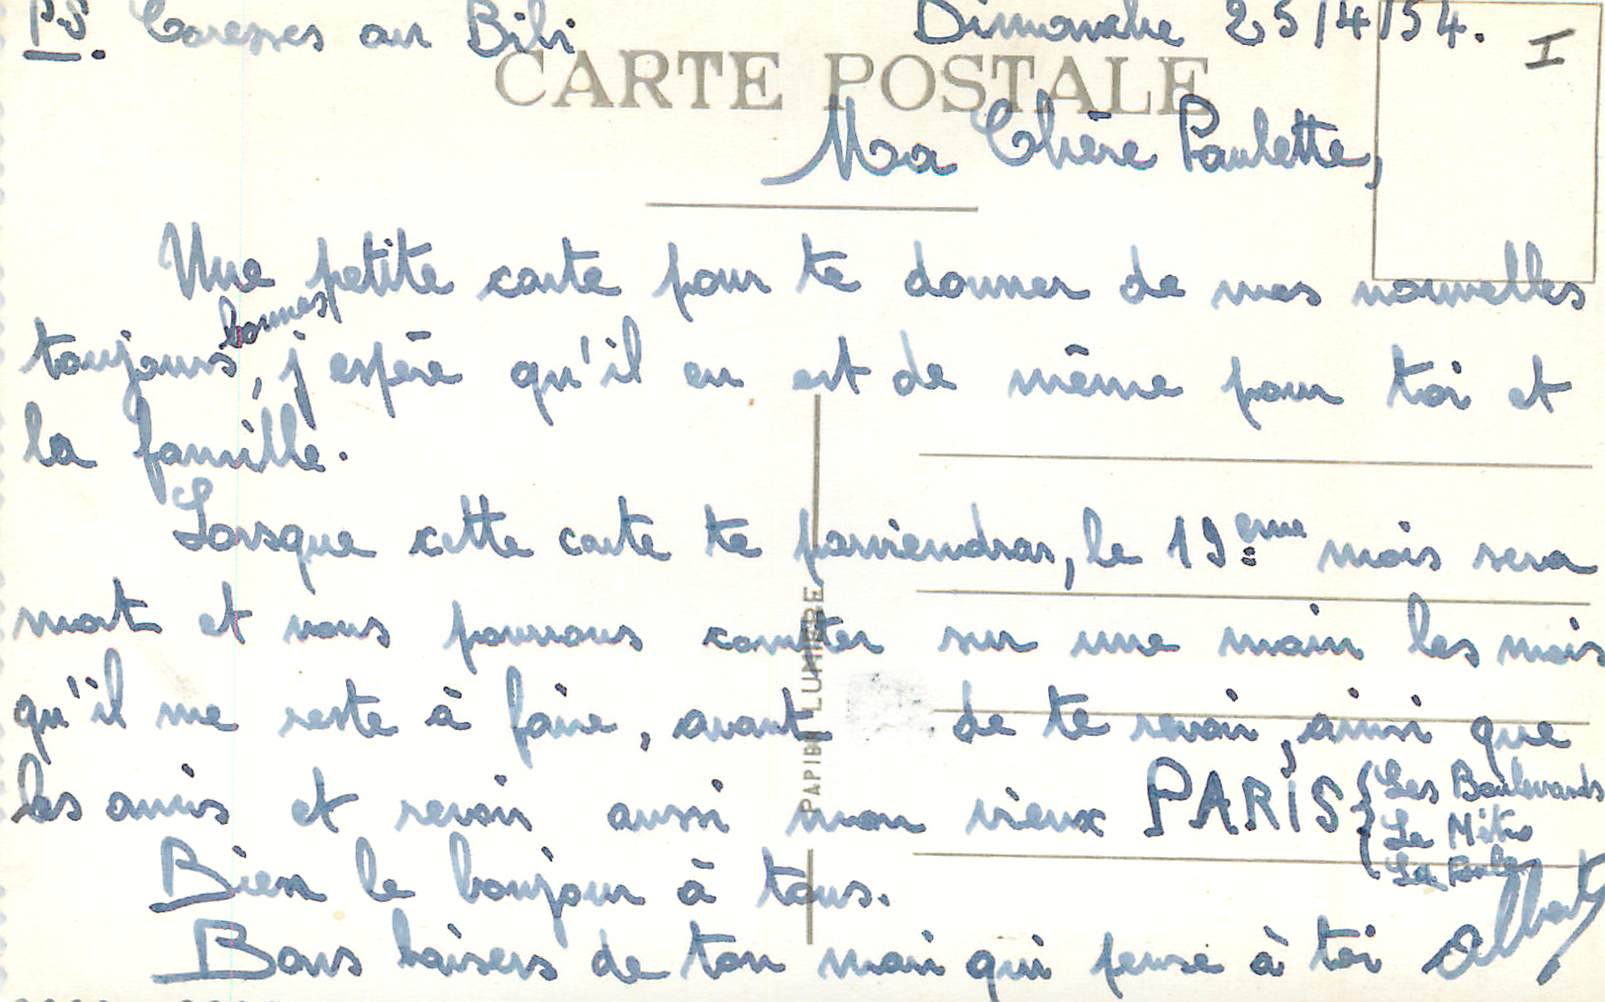 P.S. Caresses au Bibi
Dimanche 25/4/54.
I
CARTE POSTALE
Ma Chère Paulette,
Une petite carte pour te donner de mes nouvelles
toujours bonnes, j'espère qu'il en est de même pour toi et
la famille.
Lorsque cette carte te parviendras, le 19ème mois sera
mort et nous pourrons compter sur une main les mois
qu'il me reste à faire, avant de te revoir, ainsi que
les amis et revoir aussi mon vieux PARIS { Les Boulevards
Le Métro
La Foule
Bien le bonjour à tous.
Bons baisers de ton mari qui pense à toi Albert
PAPIER LUMIERE